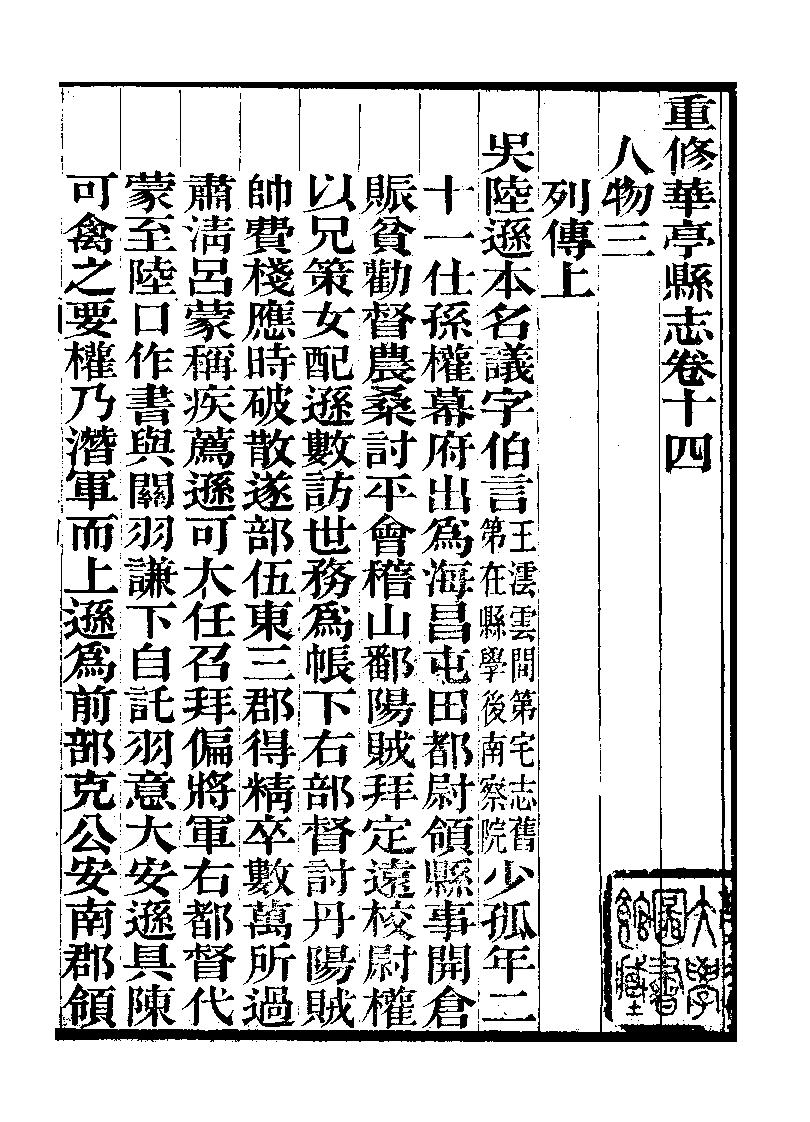 重修華亭縣志卷十四
人物三
列傳上
吳陸遜本名議字伯言王澐雲間第宅志舊第在縣學後南察院少孤年二
十一仕孫權幕府出爲海昌屯田都尉領縣事開倉
賑貧勸督農桑討平會稽山鄱陽賊拜定遠校尉權
以兄策女配遜數訪世務爲帳下右部督討丹陽賊
帥費棧應時破散遂部伍東三郡得精卒數萬所過
肅淸呂蒙稱疾薦遜可大任召拜偏將軍右都督代
蒙至陸口作書與關羽謙下自託羽意大安遜具陳
可禽之要權乃潛軍而上遜爲前部克公安南郡領
大學
圖書